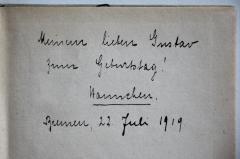 Meinem lieben Gustav
zum Geburtstag!
Hannchen.
Bremen, 22. Juli 1919